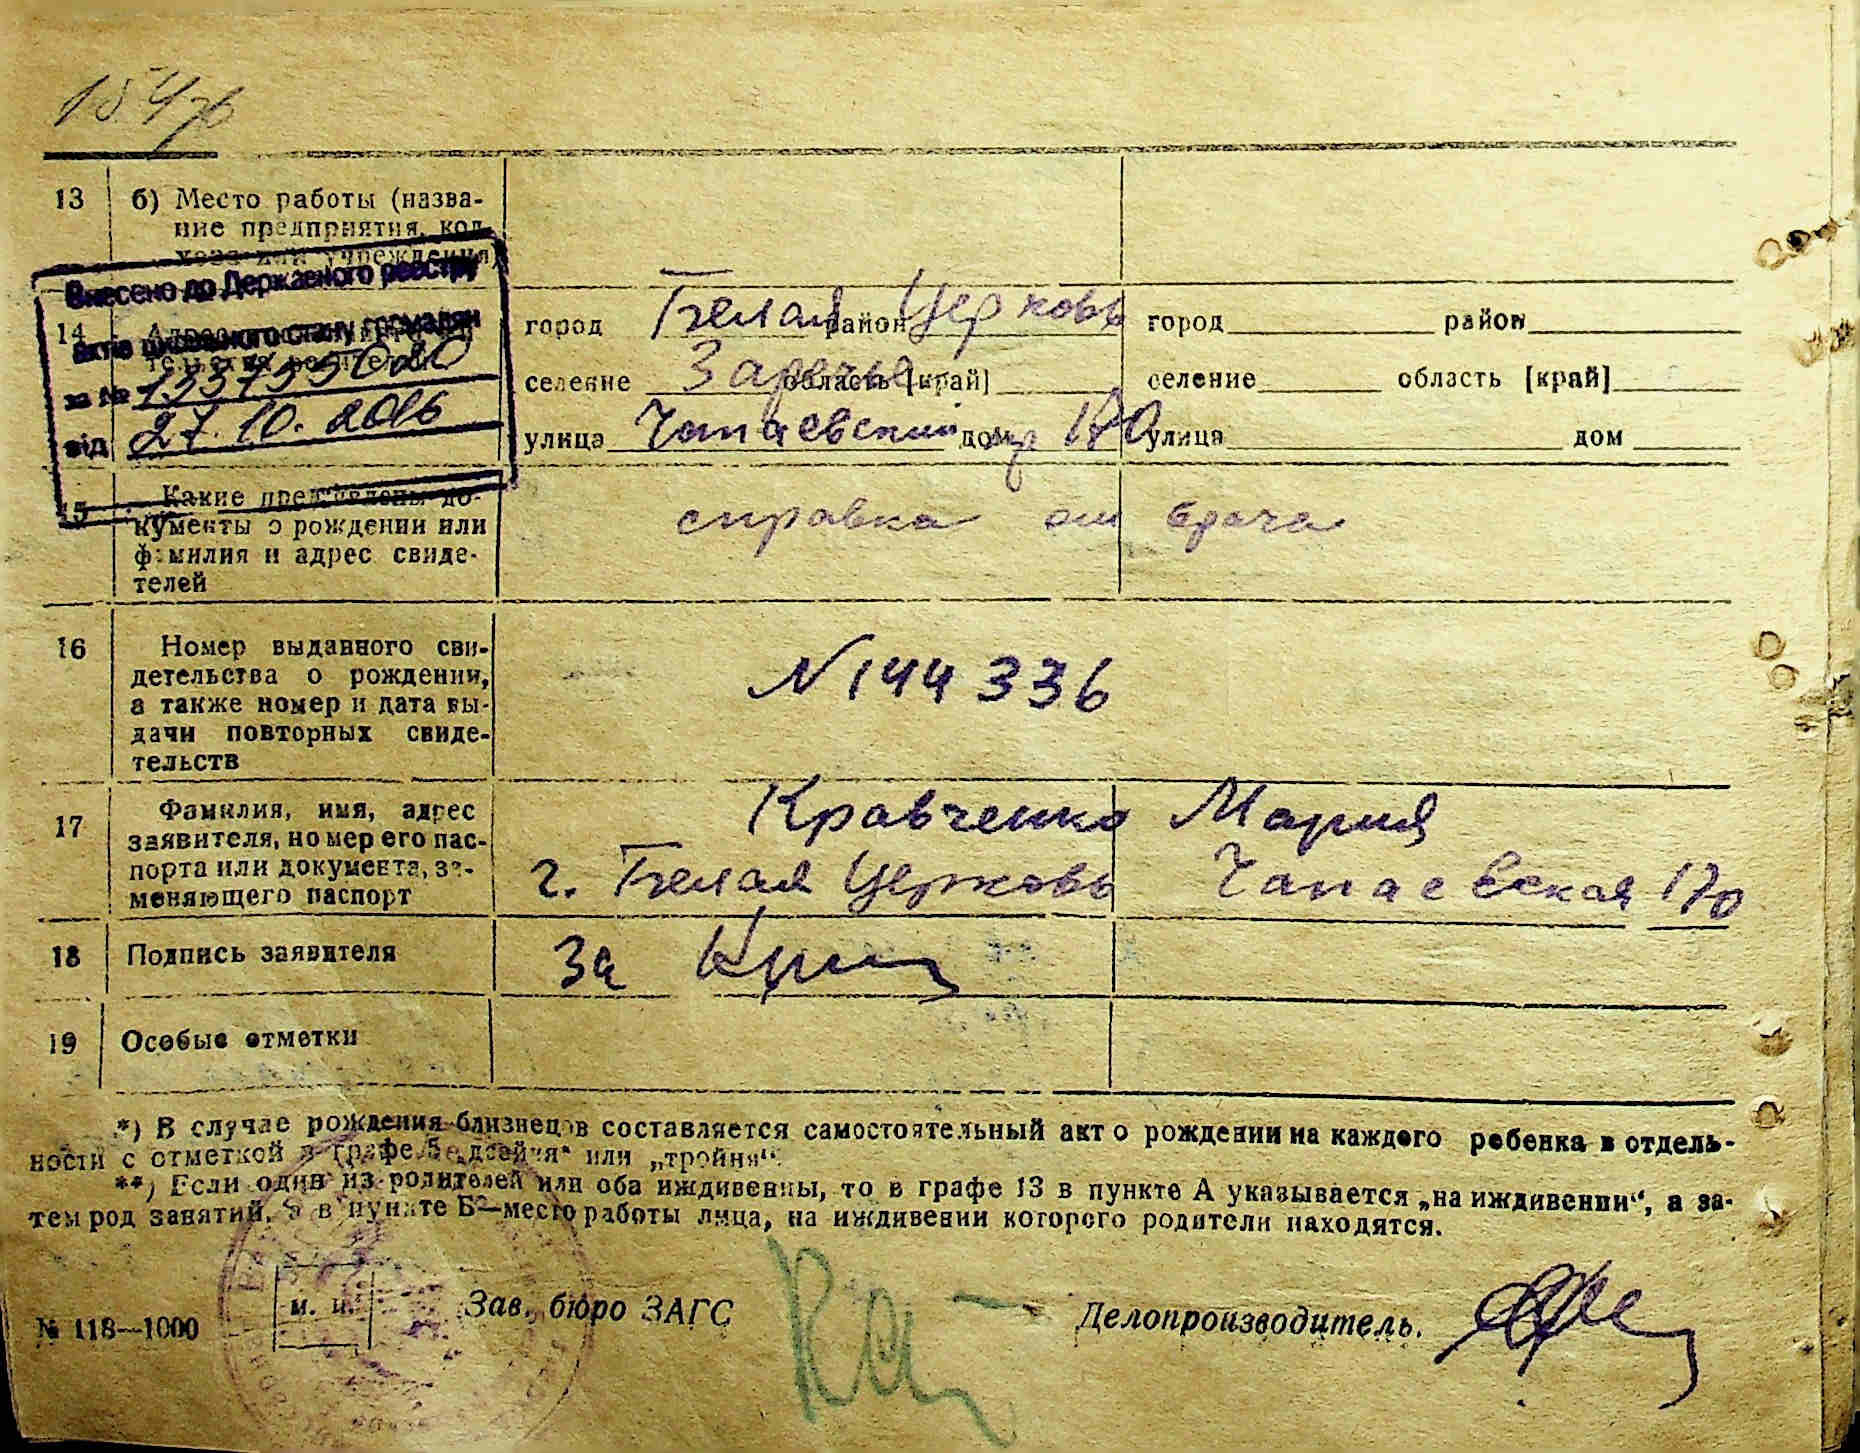 154
13 б) Место работы (назва-
ние предприятия, кол-
хоза или учреждения)
Внесено до Державного реєстру
актів цивільного стану громадян
за №
від 27.10.2016
14
город Белая Церковь район
селение Заречье область [край]
улица Чапаевский дом 170
город район
селение область [край]
улица дом
15 Какие представлены до-
кументы о рождении или
фамилия и адрес свиде-
телей
справка от врача
16 Номер выданного сви-
детельства о рождении,
а также номер и дата вы-
дачи повторных свиде-
тельств
N 144336
17 Фамилия, имя, адрес
заявителя, номер его пас-
порта или документа, за-
меняющего паспорт
Кравченко Мария
г. Белая Церковь Чапаевская 170
18 Подпись заявителя
За
19 Особые отметки
*) В случае рождения близнецов составляется самостоятельный акт о рождении на каждого ребенка в отдель-
ности с отметкой в графе 5 „двойня“ или „тройня“.
**) Если один из родителей или оба иждивенцы, то в графе 13 в пункте А указывается „на иждивении“, а за-
тем род занятий, а в пункте Б—место работы лица, на иждивении которого родители находятся.
м. п.
№ 118—1000
Зав. бюро ЗАГС
Делопроизводитель.